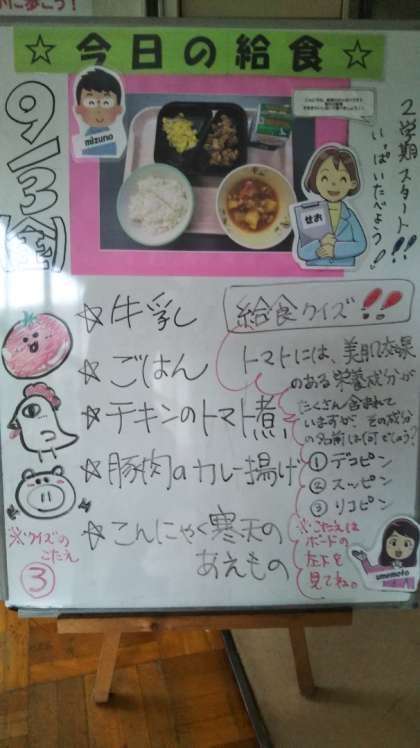 に歩こう！
☆今日の給食☆
9/3金
mizuno
せお
2学期スタート!!
いっぱいたべよう!!
☆牛乳
☆ごはん
☆チキンのトマト煮
☆豚肉のカレー揚げ
☆こんにゃく寒天の
あえもの
給食クイズ!!
トマトには、美肌効果
のある栄養成分が
たくさん含まれて
いますが、その成分
の名前は何でしょう?
①デコピン
②スッピン
③リコピン
※こたえは
ボードの
左下を
見てね。
umemoto
※クイズの
こたえ
③